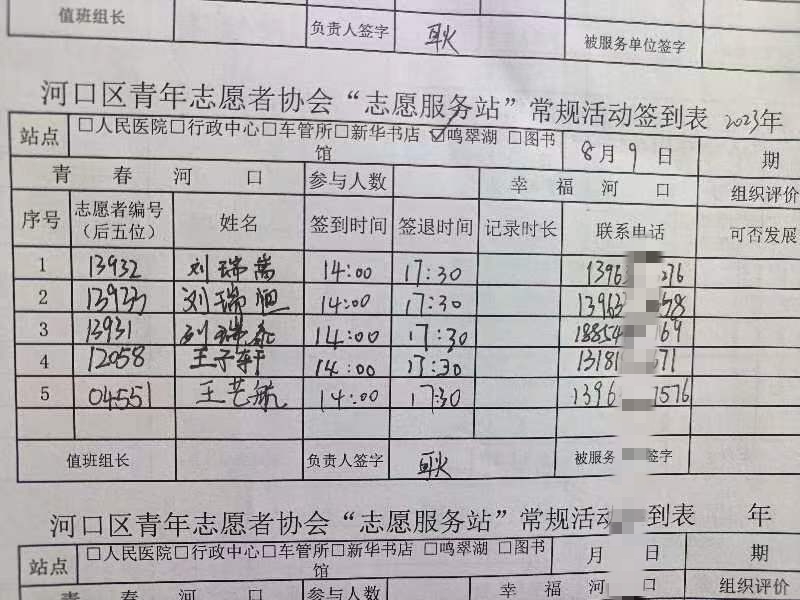 值班组长 负责人签字 耿 被服务单位签字
河口区青年志愿者协会“志愿服务站”常规活动签到表 2023年
站点 □人民医院□行政中心□车管所□新华书店 ☑鸣翠湖 □图书馆 8月9日 期
青春河口 参与人数 幸福河口 组织评价
序号 志愿者编号（后五位） 姓名 签到时间 签退时间 记录时长 联系电话 可否发展
1 13932 刘瑞 14:00 17:30 13963 76
2 13933 刘瑞 14:00 17:30 13963 8
3 13931 刘瑞 14:00 17:30 18854 69
4 12058 王子轩 14:00 17:30 13181 671
5 04551 王艺航 14:00 17:30 1396 7576
值班组长 负责人签字 耿 被服务 签字
河口区青年志愿者协会“志愿服务站”常规活动 到表 年
站点 □人民医院□行政中心□车管所□新华书店 □鸣翠湖 □图书馆 月 日 期
青春河口 参与人数 幸福河口 组织评价